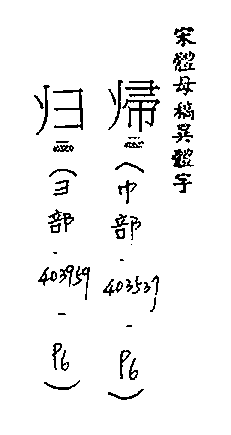 宋體母稿異體字
帰(巾部-403537-P6)
归(彐部-403959-P6)